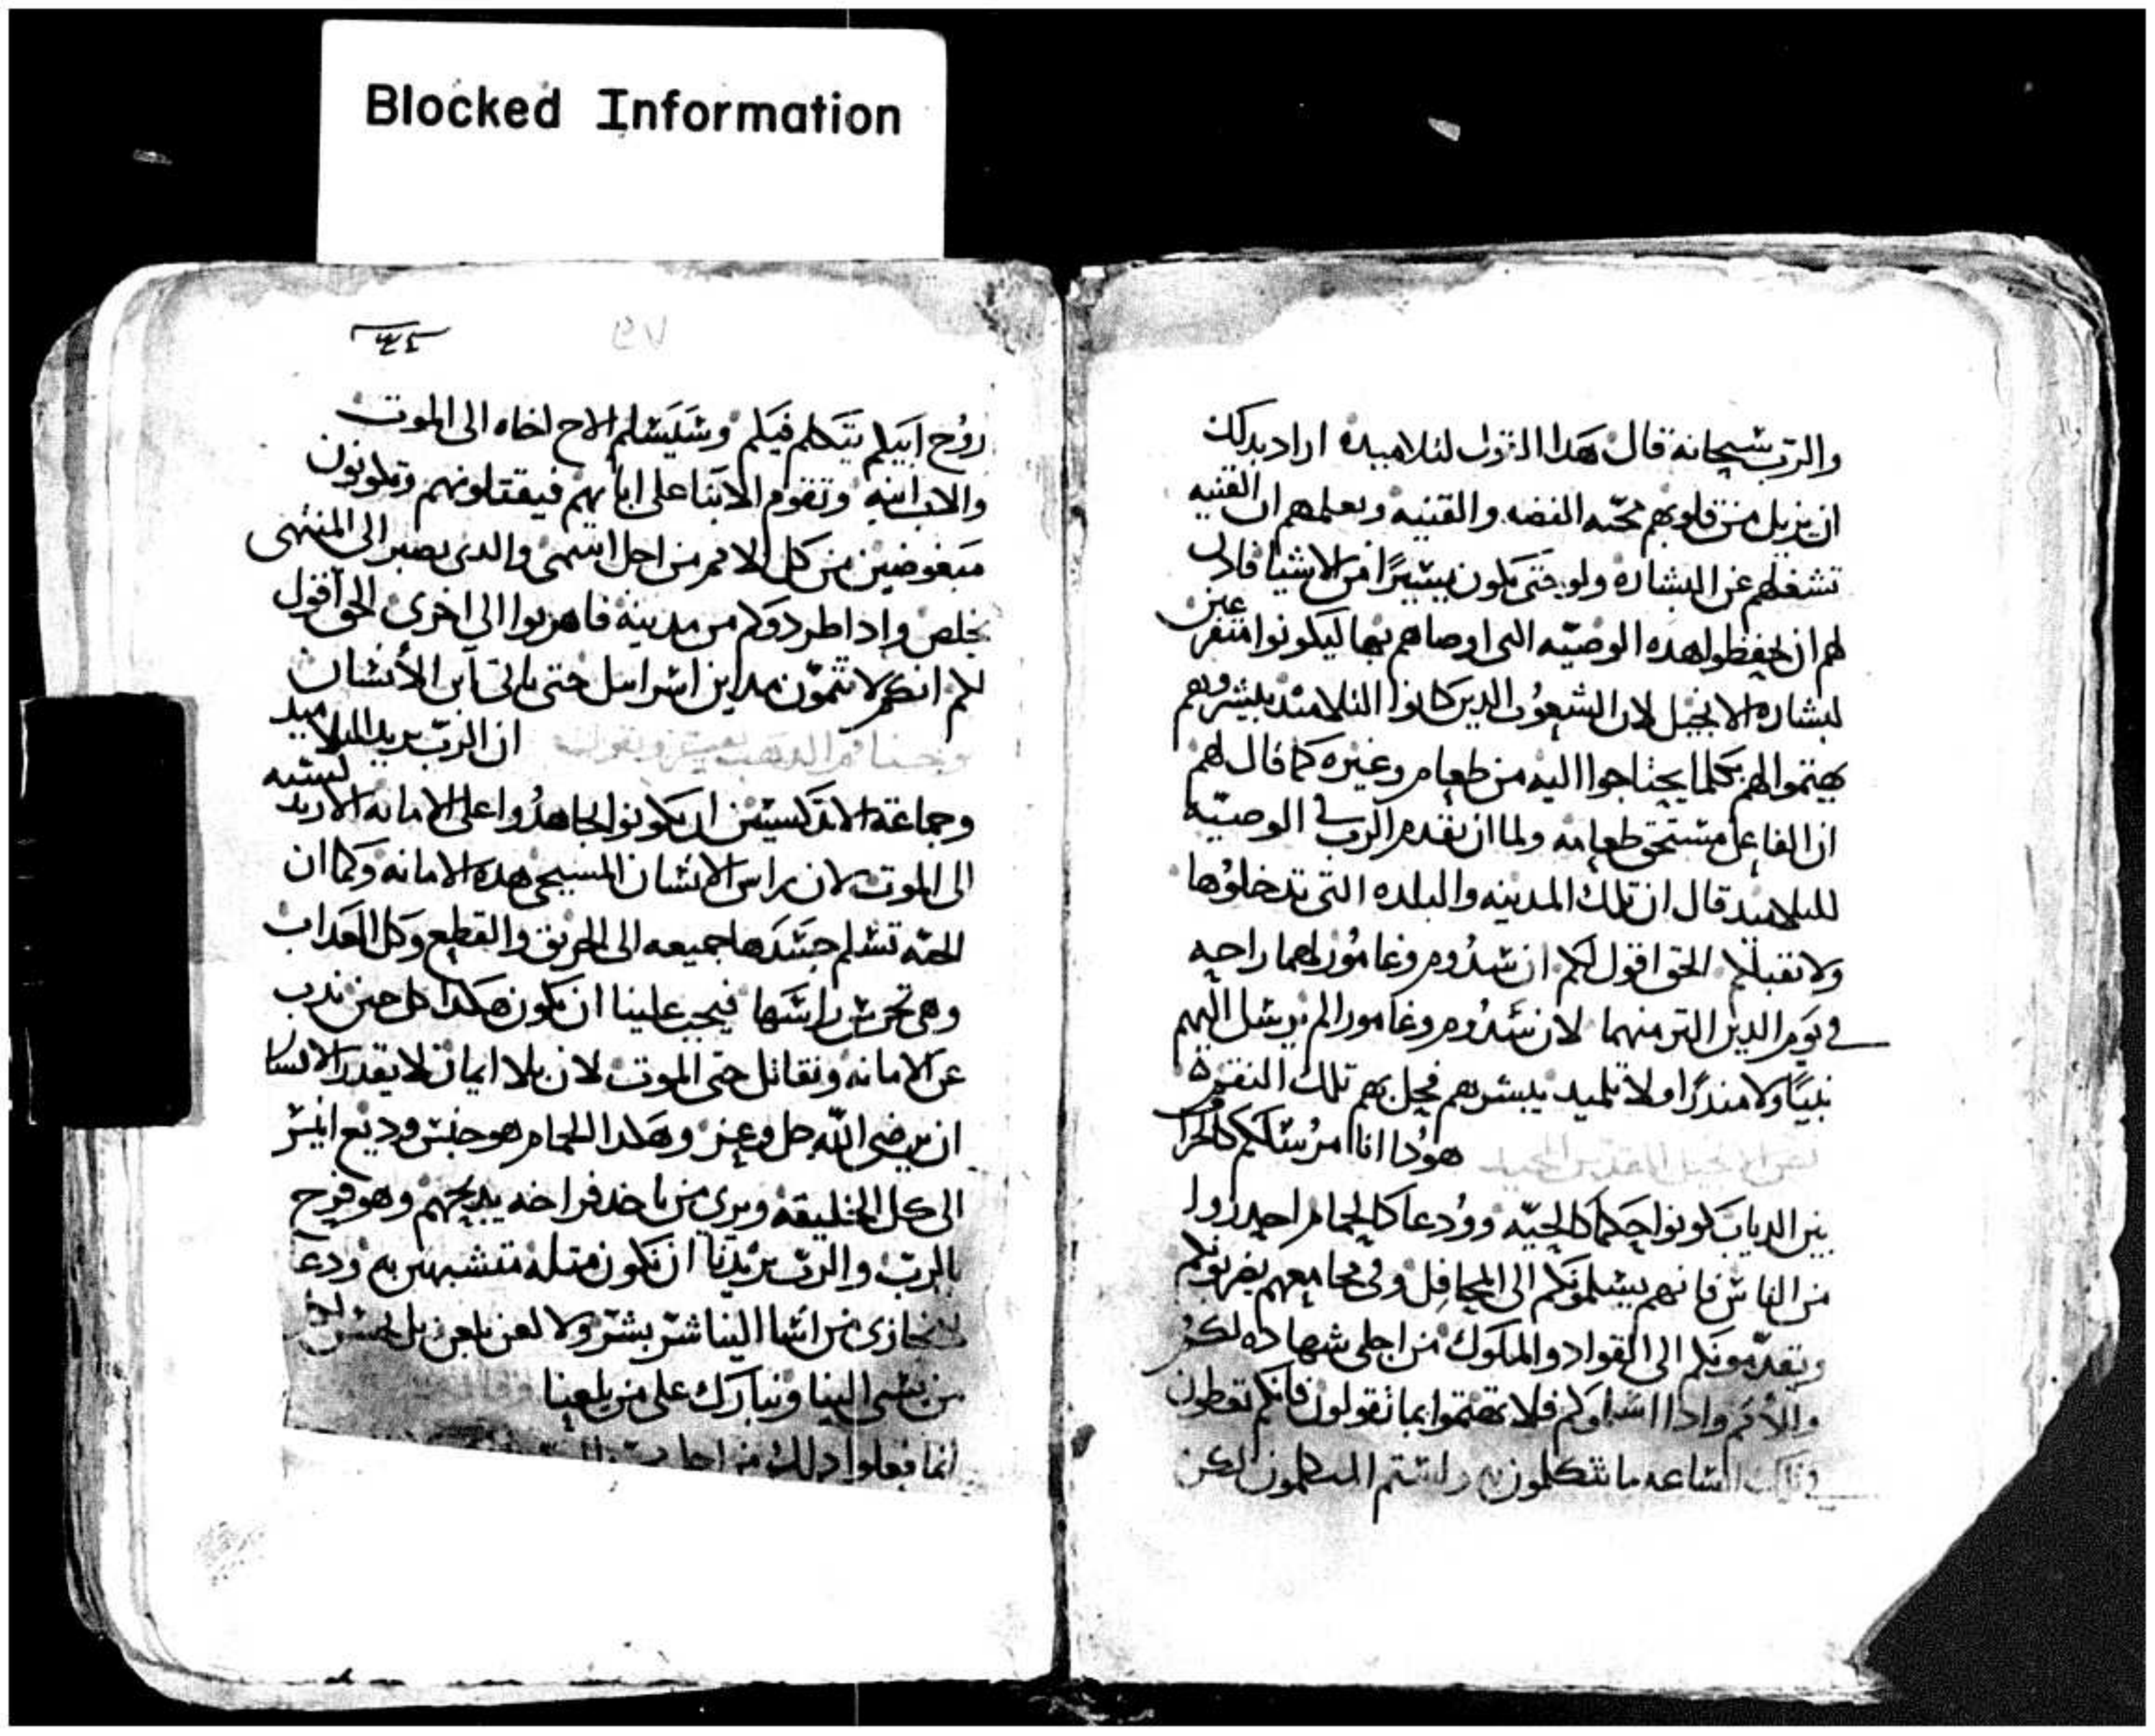 Blocked Information
والرب سبحانه قال هدا القول لتلاميده اراد بدلك
ان يزيل من قلوبهم محبه الفضه والقنيه ويعلمهم ان القنيه
تشغلهم عن البشاره ولو حتى يكون يسيرًا من الاشيا قادى
لهم ان يحفظوا هده الوصيه التى اوصاهم بها ليكونوا متفرغين
لبشاره الانجيل لان الشعوب الدين كانوا التلاميد يبشروهم
يهتموا لهم بكلما يحتاجوا اليه من طعام وغيره كما قال لهم
ان الفاعل مستحق طعامه ولما ان تقدم الرب فى الوصيه
للتلاميد قال ان تلك المدينه والبلده التى تدخلوها
ولا تقبلكم الحق اقول لكم ان سدوم وغامورا لهما راحه
فى يوم الدين اكتر منهما لان سدوم وغامورا لم يرسل اليهم
نبيًا ولا مندرًا ولا تلميد يبشرهم فيحل بهم تلك النقمه
نص الانجيل المقدس المجيد هودا انا مرسلكم كالخراف
بين الدياب كونوا حكما كالحيه وودعا كالحمام احدروا
من الناس فانهم يسلمونكم الى المحافل وفى مجامعهم يضربونكم
ويقدمونكم الى القواد والملوك من اجلى شهاده لكم
وللامم وادا اسلموكم فلا تهتموا بما تقولون فانكم تعطون
فى تلك الساعه ما تتكلمون به ولستم المتكلمون لكن
روح ابيكم يتكلم فيكم وسيسلم الاخ اخاه الى الموت
والاب ابنه وتقوم الابنا على ابايهم فيقتلونهم وتكونون
مبغوضين من كل الامم من اجل اسمى والدى يصبر الى المنتهى
يخلص وادا طردوكم من مدينه فاهربوا الى اخرى الحق اقول
لكم انكم لا تتمون مداين اسراييل حتى ياتى ابن الانسان
يوحنا فم الدهب يفسر ويقول ان الرب يريد التلاميد
وجماعة الارتدكسيين ان يكونوا يجاهدوا على الامانه الارتدكسيه
الى الموت لان راس الانسان المسيحى هده الامانه وكما ان
الحيه تسلم جسدها جميعه الى الحريق والقطع وكل العداب
وهى تحرس راسها فيجب علينا ان نكون هكدا كل حين ندب
عن الامانه ونقاتل حتى الموت لان بلا ايمان لا يقدر الانسان
ان يرضى الله جل وعز وهكدا الحمام هو جنس وديع انيس
الى كل الخليقه ويرى من ياخد فراخه يدبحهم وهو فرح
بالرب والرب يريدنا ان نكون مثله متشبهين به ودعا
نجازى من اسا الينا شر بشر ولا لعن بلعن بل نحسن لمن
من يسى الينا ونبارك على من يلعنا
انما فعلوا دلك من اجل